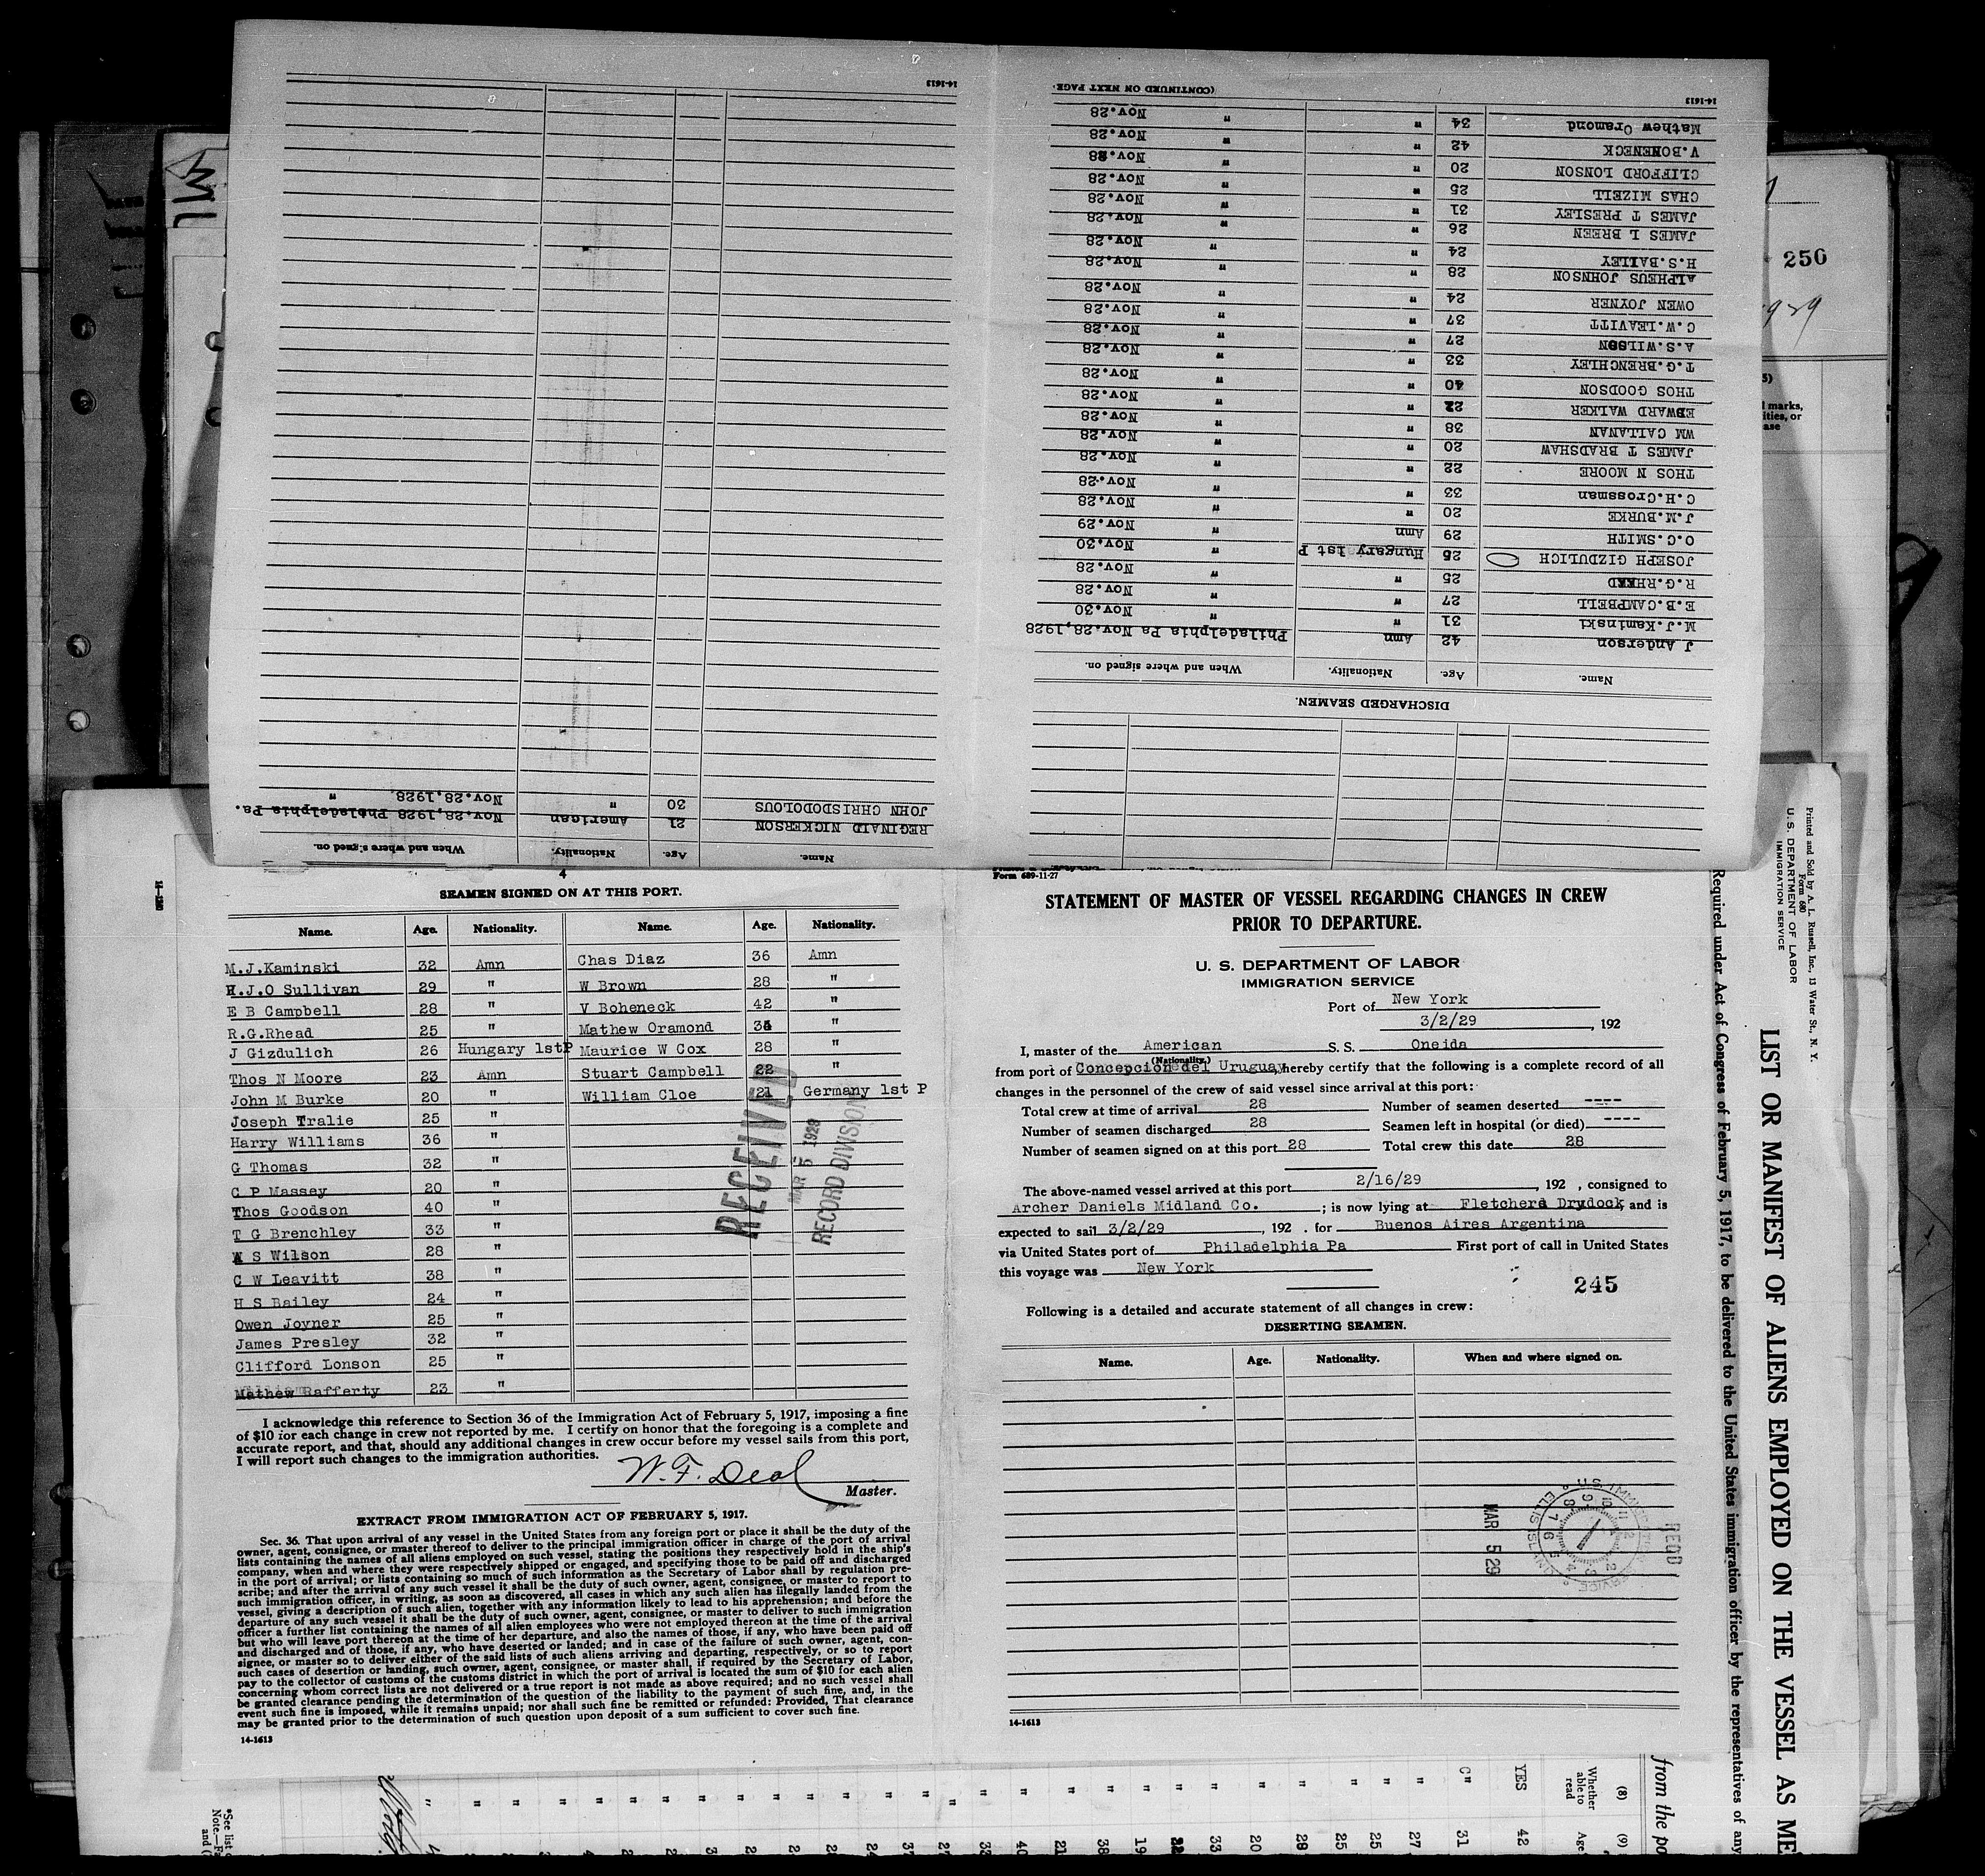 DISCHARGED SEAMEN.
Name. Age. Nationality. When and where signed on.
J Anderson 42 Amn Philadelphia Pa Nov.28,1928
M.J.Kaminski 31 " " Nov.30
E.B.CAMPBELL 27 " " Nov.28
R.G.RHEAD 25 " " Nov.28
JOSEPH GIZDULICH 25 Hungary 1st P " Nov.30
O.C.SMITH 29 Amn " Nov.29
J.M.BURKE 20 " " Nov.28
C.H.Grossman 33 " " Nov.28
THOS N MOORE 22 " " Nov.28
JAMES T BRADSHAW 20 " " Nov.28
WM CALLANAN 38 " " Nov.28
EDWARD WALKER 22 " " Nov.28
THOS GOODSON 40 " " Nov.28
T.G.BRENCHLEY 33 " " Nov.28
A.S.WILSON 27 " " Nov.28
C.W.LEAVITT 37 " " Nov.28
OWEN JOYNER 24 " " Nov.28
ALPHEUS JOHNSON 28 " " Nov.28
H.S.BAILEY 24 " " Nov.28
JAMES L BREEN 26 " " Nov.28
JAMES T PRESLEY 31 " " Nov.28
CHAS MIZELL 25 " " Nov.28
CLIFFORD LONSON 20 " " Nov.28
V.BOHENECK 42 " " Nov.28
Mathew Oramond 34 " " Nov.28
14-1613
(CONTINUED ON NEXT PAGE.
Name. Age. Nationality. When and where signed on.
REGINALD NICKERSON 21 American Nov.28,1928 Philadelphia Pa.
JOHN CHRISDODOLOUS 30 " Nov.28,1928, "
14-1613
4
SEAMEN SIGNED ON AT THIS PORT.
Name. Age. Nationality. Name. Age. Nationality.
M.J.Kaminski 32 Amn Chas Diaz 36 Amn
H.J.O Sullivan 29 " W Brown 28 "
E B Campbell 28 " V Boheneck 42 "
R.G.Rhead 25 " Mathew Oramond 34 "
J Gizdulich 26 Hungary 1stP Maurice W Cox 28 "
Thos N Moore 23 Amn Stuart Campbell 22 "
John M Burke 20 " William Cloe 21 Germany 1st P
Joseph Tralie 25 "
Harry Williams 36 "
G Thomas 32 "
C P Massey 20 "
Thos Goodson 40 "
T G Brenchley 33 "
A S Wilson 28 "
C W Leavitt 38 "
H S Bailey 24 "
Owen Joyner 25 "
James Presley 32 "
Clifford Lonson 25 "
Mathew Rafferty 23 "
RECEIVED
MAR 5 1929
RECORD DIVISION
I acknowledge this reference to Section 36 of the Immigration Act of February 5, 1917, imposing a fine
of $10 for each change in crew not reported by me. I certify on honor that the foregoing is a complete and
accurate report, and that, should any additional changes in crew occur before my vessel sails from this port,
I will report such changes to the immigration authorities.
W. F. Deal
Master.
EXTRACT FROM IMMIGRATION ACT OF FEBRUARY 5, 1917.
Sec. 36. That upon arrival of any vessel in the United States from any foreign port or place it shall be the duty of the
owner, agent, consignee, or master thereof to deliver to the principal immigration officer in charge of the port of arrival
lists containing the names of all aliens employed on such vessel, stating the positions they respectively hold in the ship's
company, when and where they were respectively shipped or engaged, and specifying those to be paid off and discharged
in the port of arrival; or lists containing so much of such information as the Secretary of Labor shall by regulation pre-
scribe; and after the arrival of any such vessel it shall be the duty of such owner, agent, consignee, or master to report to
such immigration officer, in writing, as soon as discovered, all cases in which any such alien has illegally landed from the
vessel, giving a description of such alien, together with any information likely to lead to his apprehension; and before the
departure of any such vessel it shall be the duty of such owner, agent, consignee, or master to deliver to such immigration
officer a further list containing the names of all alien employees who were not employed thereon at the time of the arrival
but who will leave port thereon at the time of her departure, and also the names of those, if any, who have been paid off
and discharged and of those, if any, who have deserted or landed; and in case of the failure of such owner, agent, con-
signee, or master so to deliver either of the said lists of such aliens arriving and departing, respectively, or so to report
such cases of desertion or landing, such owner, agent, consignee, or master shall, if required by the Secretary of Labor,
pay to the collector of customs of the customs district in which the port of arrival is located the sum of $10 for each alien
concerning whom correct lists are not delivered or a true report is not made as above required; and no such vessel shall
be granted clearance pending the determination of the question of the liability to the payment of such fine, and, in the
event such fine is imposed, while it remains unpaid; nor shall such fine be remitted or refunded: Provided, That clearance
may be granted prior to the determination of such question upon deposit of a sum sufficient to cover such fine.
14-1613
Form 689-11-27
STATEMENT OF MASTER OF VESSEL REGARDING CHANGES IN CREW
PRIOR TO DEPARTURE.
U. S. DEPARTMENT OF LABOR
IMMIGRATION SERVICE
Port of New York
3/2/29, 192
I, master of the American S. S. Oneida
(Nationality.)
from port of Concepcion del Uruguay, hereby certify that the following is a complete record of all
changes in the personnel of the crew of said vessel since arrival at this port:
Total crew at time of arrival 28 Number of seamen deserted ----
Number of seamen discharged 28 Seamen left in hospital (or died) ----
Number of seamen signed on at this port 28 Total crew this date 28
The above-named vessel arrived at this port 2/16/29, 192 , consigned to
Archer Daniels Midland Co. ; is now lying at Fletcherd Drydock, and is
expected to sail 3/2/29, 192 . for Buenos Aires Argentina
via United States port of Philadelphia Pa First port of call in United States
this voyage was New York
245
Following is a detailed and accurate statement of all changes in crew:
DESERTING SEAMEN.
Name. Age. Nationality. When and where signed on.
MAR 5 29
REOD
14-1613
250
marks,
ities, or
ase
Printed and Sold by A. L. Russell, Inc., 13 Water St., N. Y.
Form 680
U. S. DEPARTMENT OF LABOR
IMMIGRATION SERVICE
LIST OR MANIFEST OF ALIENS EMPLOYED ON THE VESSEL AS ME
Required under Act of Congress of February 5, 1917, to be delivered to the United States immigration officer by the representatives of any
from the po
(8) (9)
Whether able to read Age
YES 42
C" 31
" 27
" 25
" 25
" 28
" 20
" 33
" 22
" 19
" 38
" 21
" 40
*See list
Note.—Fa
and (